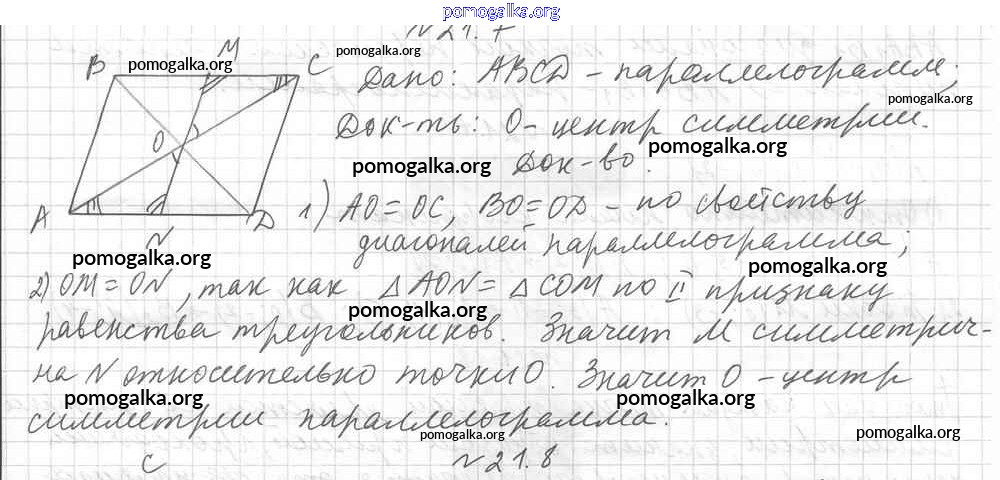 pomogalka.org
№ 21.7
B M C
pomogalka.org
pomogalka.org
Дано: ABCD - параллелограмм;
pomogalka.org
Док-ть: O - центр симметрии.
O
pomogalka.org
pomogalka.org
Док-во.
A N D
1) AO = OC, BO = OD - по свойству
диагоналей параллелограмма;
pomogalka.org
pomogalka.org
2) OM = ON, так как △AON = △COM по II признаку
pomogalka.org
равенства треугольников. Значит M симметрич-
на N относительно точки O. Значит O - центр
pomogalka.org
pomogalka.org
симметрии параллелограмма.
pomogalka.org
pomogalka.org
C № 21.8